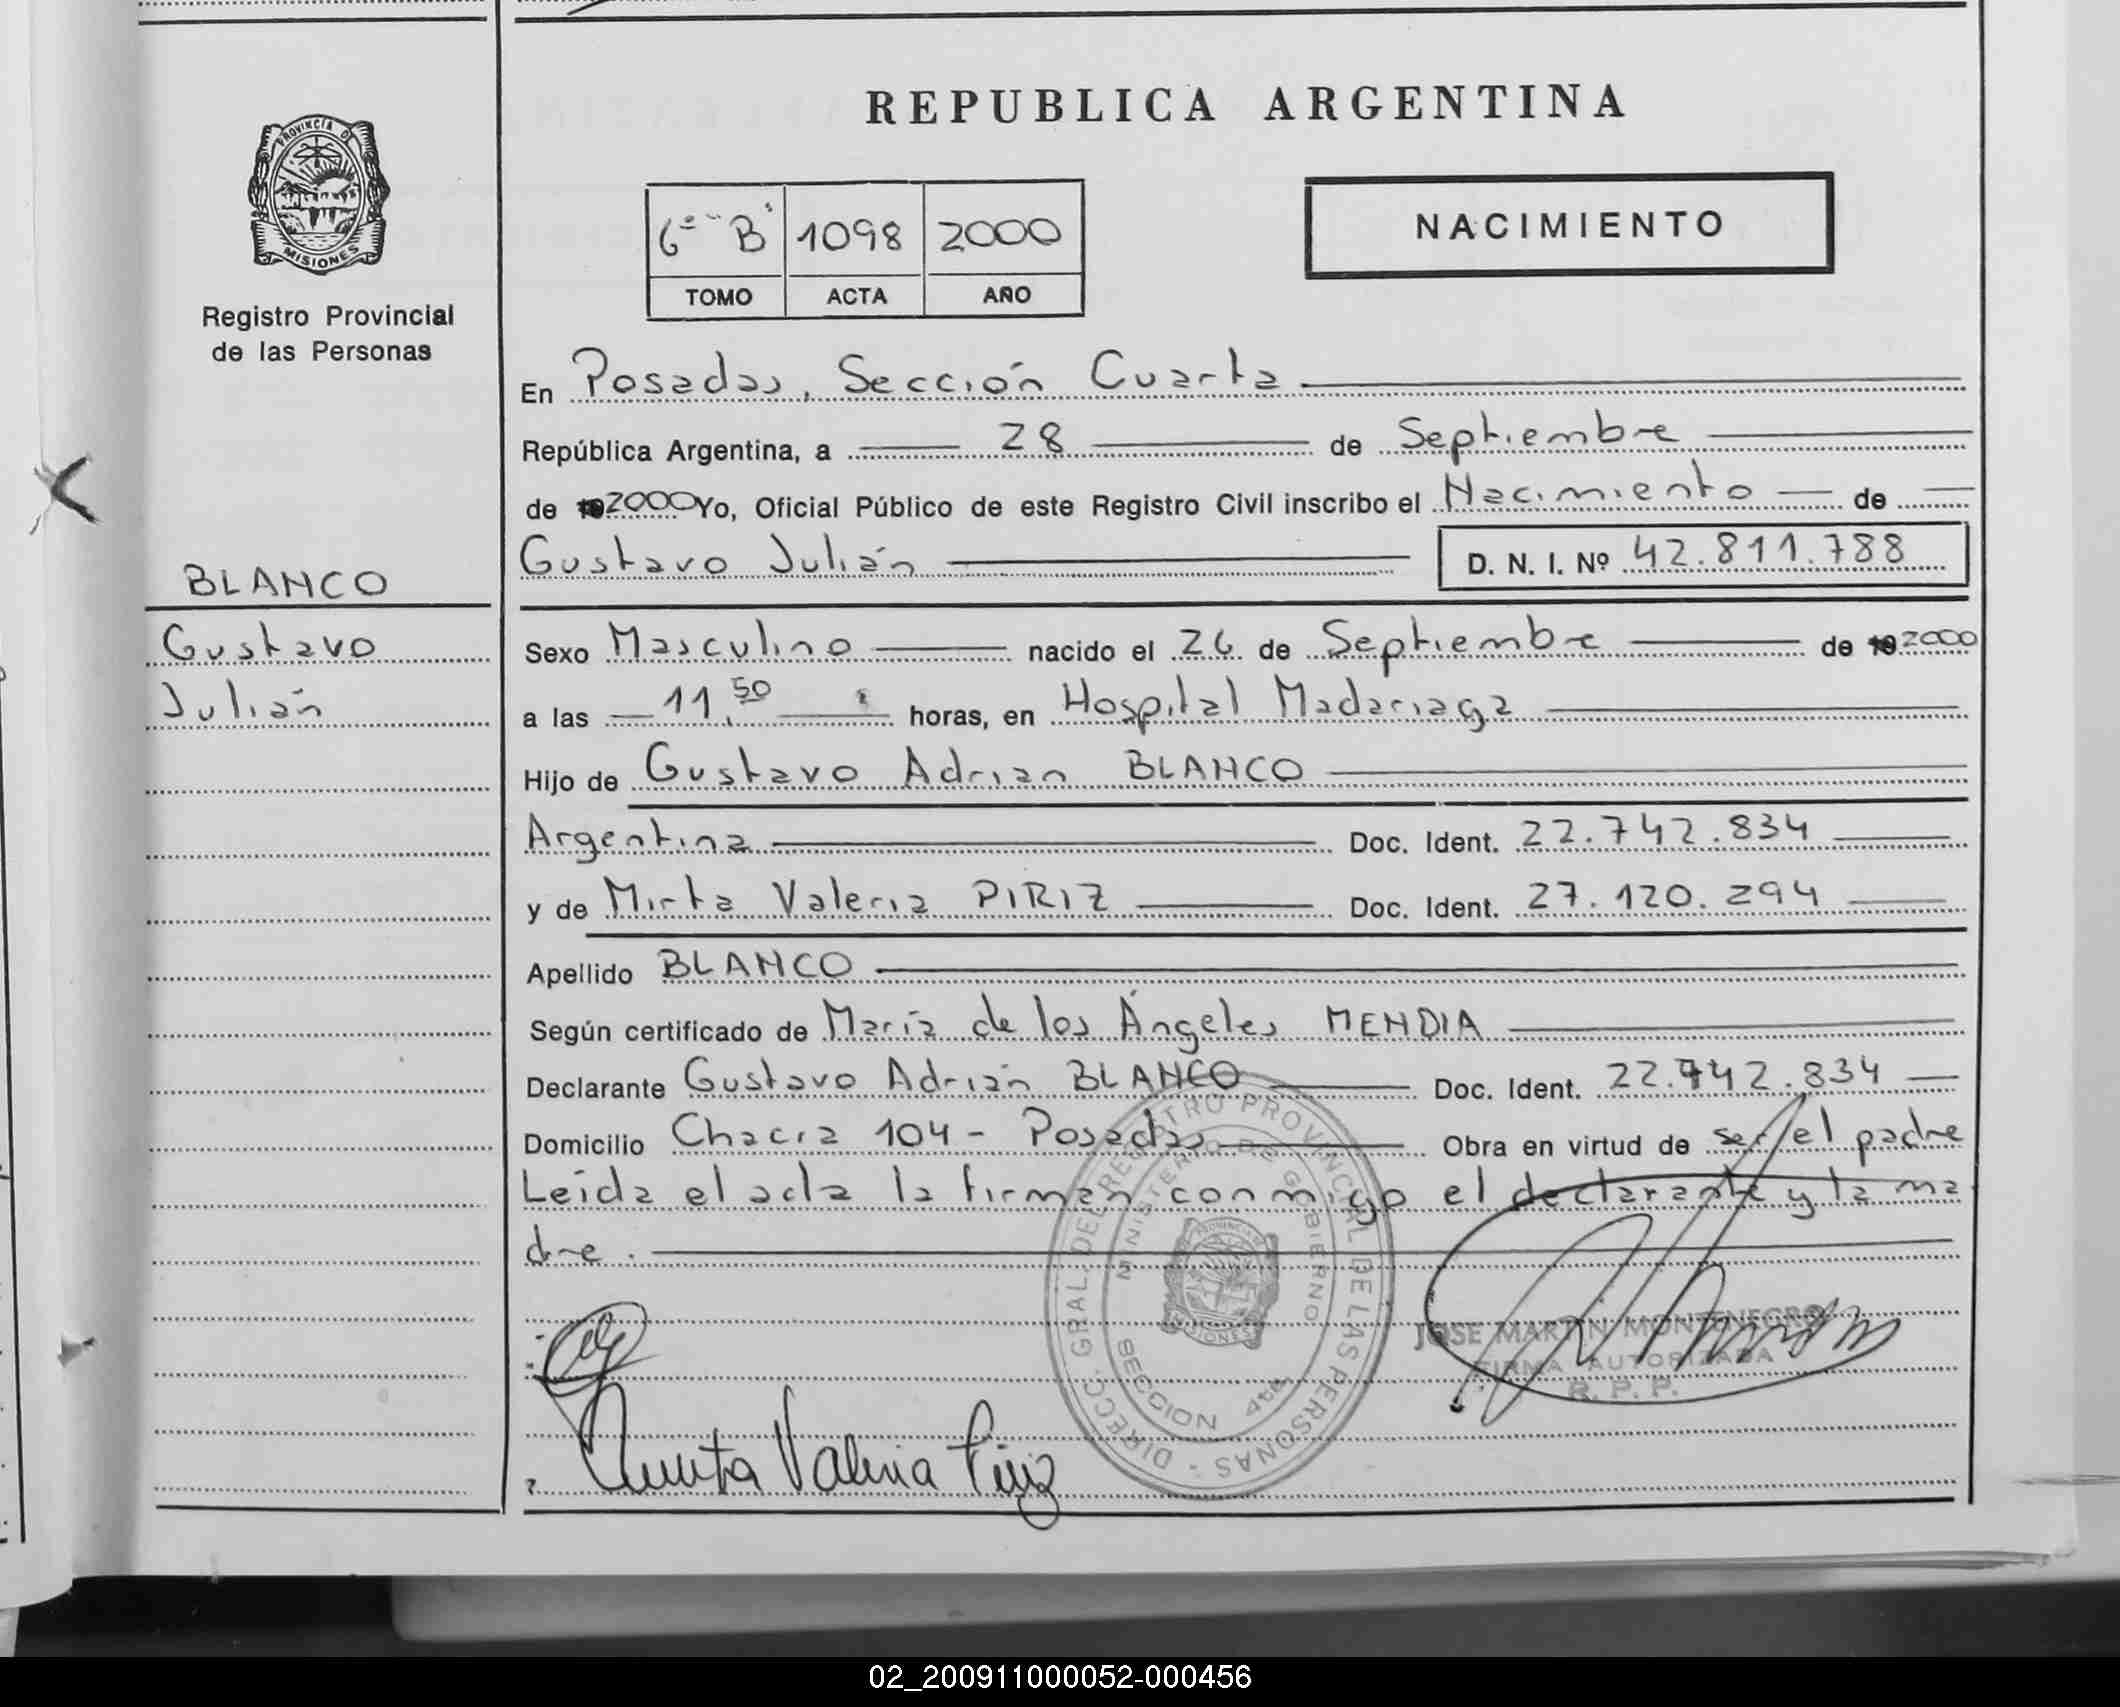 REPUBLICA ARGENTINA
PROVINCIA D
MISIONES
Registro Provincial
de las Personas
6º "B" 1098 2000
TOMO ACTA AÑO
NACIMIENTO
En Posadas, Sección Cuarta
República Argentina, a 28 de Septiembre
de 19 2000 Yo, Oficial Público de este Registro Civil inscribo el Nacimiento de
Gustavo Julián D. N. I. Nº 42.811.788
BLANCO
Gustavo
Julián
Sexo Masculino nacido el 26 de Septiembre de 19 2000
a las 11,50 horas, en Hospital Madariaga
Hijo de Gustavo Adrian BLANCO
Argentina Doc. Ident. 22.742.834
y de Mirta Valeria PIRIZ Doc. Ident. 27.120.294
Apellido BLANCO
Según certificado de María de los Ángeles MENDIA
Declarante Gustavo Adrián BLANCO Doc. Ident. 22.742.834
Domicilio Chacra 104 - Posadas Obra en virtud de ser el padre
Leída el acta la firman conmigo el declarante y la ma
dre.
DIRECC. GRAL. DEL REGISTRO PROVINCIAL DE LAS PERSONAS -
MINISTERIO DE GOBIERNO
PROVINCIA
MISIONES
SECCION 4ta
JOSE MARTIN MONTENEGRO
FIRMA AUTORIZADA
R. P. P.
Mirta Valeria Piriz
02_200911000052-000456